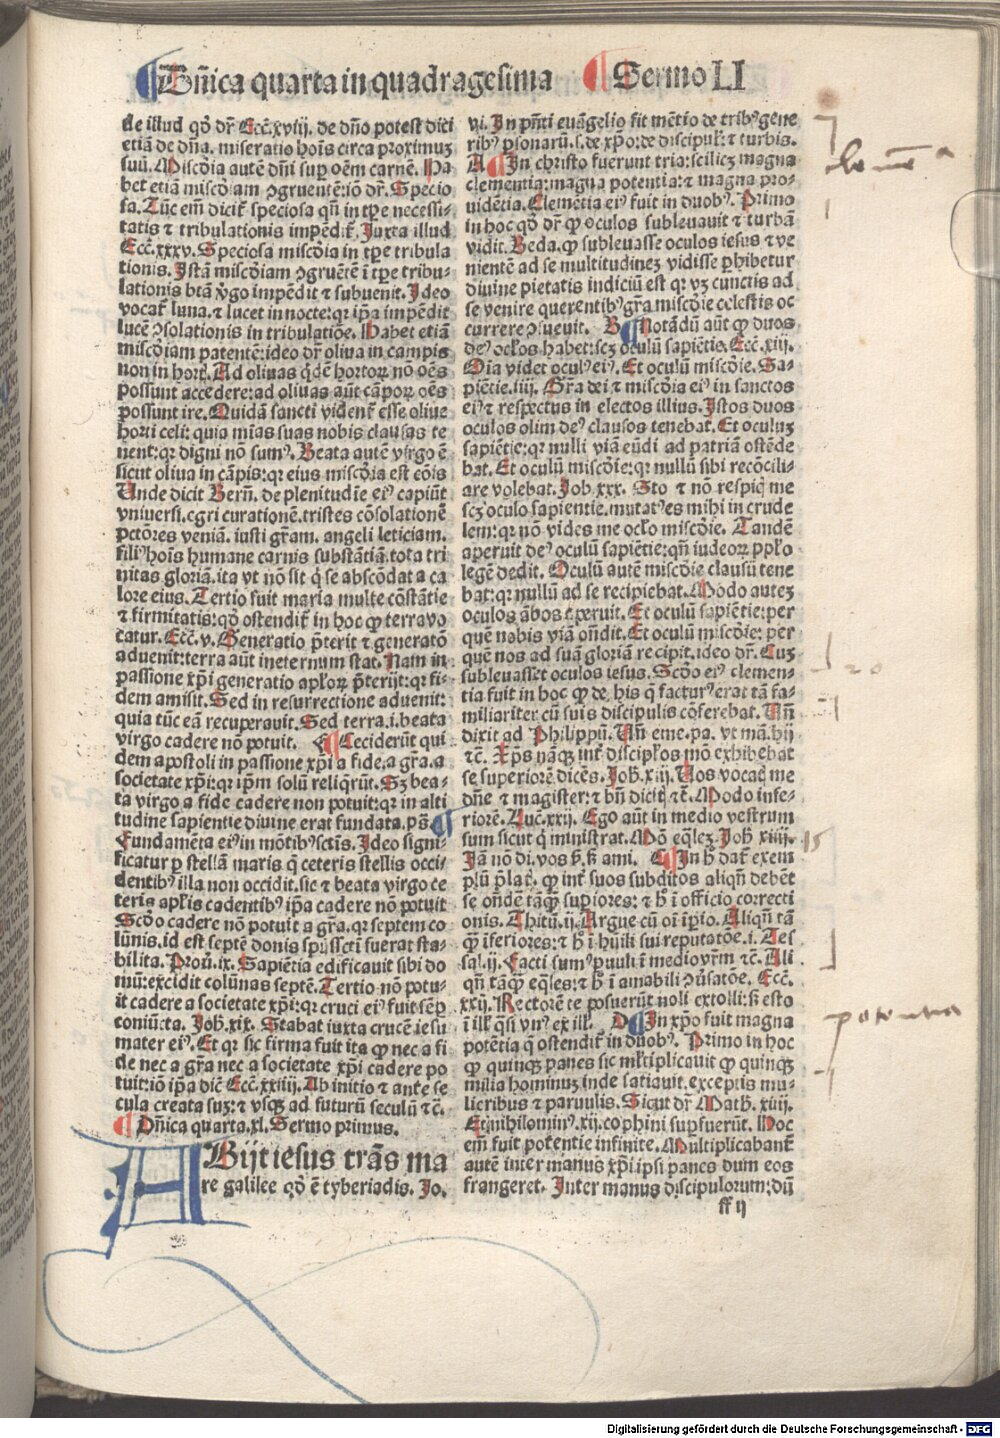 Dn̄ica quarta in quadragesima Sermo LI
de illud qd̄ dr̄ Ecc̄. xviij. de dn̄o potest dici
etiā de dn̄a. miseratio hoīs circa proximuʒ
suū. Miscd̄ia autē dn̄i sup oēm carnē. Ha
bet etiā miscd̄iam ꝯgruentē: iō dr̄. Specio
sa. Tūc em̄ dicit̄ speciosa qn̄ in tp̄e necessi-
tatis ⁊ tribulationis impēdit̄. Juxta illud
Ecc̄. xxxv. Speciosa miscd̄ia in tp̄e tribula
tionis. Istā miscd̄iam ꝯgruētē ī tp̄e tribu-
lationis btā v̄go impēdit ⁊ subuenit. Ideo
vocat̄ luna. ⁊ lucet in nocte: qr ip̄a impēdit
lucē ꝯsolationis in tribulatiōe. Habet etiā
miscd̄iam patentē: ideo dr̄ oliua in campis
non in hort̄. Ad oliuas qͥdē hortoꝝ nō oēs
possunt accedere: ad oliuas aūt cāpoꝝ oēs
possunt ire. Quidā sancti vident̄ esse oliue
horti celi: quia mīas suas nobis clausas te
nent: qr digni nō sumꝰ. Beata autē virgo ē
sicut oliua in cāpis: qr eius miscd̄ia est cōis
Unde dicit Bern̄. de plenitudīe eiꝰ capiūt
vniuersi. egri curationē. tristes cōsolationē
pctōres veniā. iusti gr̄am. angeli leticiam.
filiꝰ hoīs humane carnis substātiā. tota tri
nitas gloriā. ita vt nō sit qͥ se abscōdat a ca
lore eius. Tertio fuit maria multe cōstātie
⁊ firmitatis: qd̄ ostendit̄ in hoc ꝙ terra vo
catur. Ecc̄. v. Generatio p̄terit ⁊ generatō
aduenit: terra aūt in eternum stat. Nam in
passione xp̄i generatio aplōꝝ p̄terijt: qr fi-
dem amisit. Sed in resurrectione aduenit:
quia tūc eā recuperauit. Sed terra. i. beata
virgo cadere nō potuit. ¶ Ceciderūt qui
dem apostoli in passione xp̄i a fide. a gr̄a. a
societate xp̄i: qr ip̄m solū reliq̄rūt. Sʒ bea-
ta virgo a fide cadere non potuit: qr in alti
tudine sapientie diuine erat fundata. pā.
Fundamēta eiꝰ in mōtibꝰ sctīs. Ideo signi-
ficatur p stellā maris q̄ ceteris stellis occi-
dentibꝰ illa non occidit. sic ⁊ beata virgo ce
teris aplīs cadentibꝰ ip̄a cadere nō potuit
Scd̄o cadere nō potuit a gr̄a. qr septem co
lūnis. id est septē donis spūssctī fuerat sta-
bilita. Prou̇. ix. Sapiētia edificauit sibi do
mū: excidit colūnas septē. Tertio nō potu-
it cadere a societate xp̄i: qr cruci eiꝰ fuit sēp
coniūcta. Joh̄. xix. Stabat iuxta crucē iesu
mater eiꝰ. Et qr sic firma fuit ita ꝙ nec a fi
de nec a gr̄a nec a societate xp̄i cadere po
tuit: iō ip̄a dic̄ Ecc̄. xxiiij. Ab initio ⁊ ante se
cula creata suʒ: ⁊ vsqʒ ad futurū seculū ⁊c̄.
¶ Dn̄ica quarta. xl. Sermo primus.
ABijt iesus trās ma
re galilee qd̄ ē tyberiadis. Jo.
vi. In pn̄ti euāgelio fit mētio de tribꝰ gene
ribꝰ psonarū. s. de xp̄o: de discipul̄: ⁊ turbis.
A ¶ In christo fuerunt tria: scilicʒ magna
clementia: magna potentia: ⁊ magna pro-
uidētia. Clemētia eiꝰ fuit in duobꝰ. Primo
in hoc qd̄ dr̄ ꝙ oculos subleuauit ⁊ turbā
vidit. Beda. ꝙ subleuasse oculos iesus ⁊ ve
nientē ad se multitudineʒ vidisse phibetur
diuine pietatis indiciū est qr vʒ cunctis ad
se venire querentibꝰ gr̄a miscd̄ie celestis oc
currere ꝯsueuit. B ¶ Notādū aūt ꝙ duos
deꝰ oclōs habet: scʒ oculū sapiētie. Ecc̄. xiij.
Oīa videt oculꝰ eiꝰ. Et oculū miscd̄ie. Sa-
piētie. iiij. Gr̄a dei ⁊ miscd̄ia eiꝰ in sanctos
eiꝰ ⁊ respectus in electos illius. Istos duos
oculos olim deꝰ clausos tenebat. Et oculuʒ
sapiētie: qr nulli viā eūdi ad patriā ostēde
bat. Et oculū miscd̄ie: qr nullū sibi recōcili-
are volebat. Job. xxx. Sto ⁊ nō respicͥ me
scʒ oculo sapientie. mutatꝰ es mihi in crude
lem: qr nō vides me oclō miscd̄ie. Tandē
aperuit deꝰ oculū sapiētie: qn̄ iudeoꝝ pplō
legē dedit. Oculū autē miscd̄ie clausū tene
bat: qr nullū ad se recipiebat. Modo auteʒ
oculos ābos aperuit. Et oculū sapiētie: per
quē nobis viā on̄dit. Et oculū miscd̄ie: per
quē nos ad suā gloriā recipit. ideo dr̄. Cuʒ
subleuasset oculos iesus. Scd̄o eiꝰ clemen-
tia fuit in hoc ꝙ de. his q̄ facturꝰ erat tā fa-
miliariter cū suis discipulis cōferebat. Un̄
dixit ad Philippū. Un̄ eme. pa. vt mā. hij
⁊c̄. Xp̄s nāqʒ int̄ discip̄los mō exhibebat
se superiorē. dicēs. Joh̄. xiij. Uos vocat̄ me
dn̄e ⁊ magister: ⁊ bn̄ dicit̄ ⁊c̄. Modo infe-
riorē. Luc̄. xxij. Ego aūt in medio vestrum
sum sicut qͥ ministrat. Mō eq̄leʒ. Joh̄ xiiij.
Jā nō di. vos ẜ. ẜ ami. C ¶ In h̄ dat̄ exem
plū p̄lat̄. ꝙ int̄ suos subditos aliqn̄ debēt
se on̄dē tāꝙ̄ supiores: ⁊ h̄ ī officio correcti
onis. Thitū. ij. Argue cū oī īpio. Aliqn̄ tā
ꝙ̄ īferiores: ⁊ h̄ ī hūili sui reputatōe. i. Tes
sal. ij. Facti sumꝰ puuli ī medio vr̄m ⁊c̄. Ali
qn̄ tāꝙ̄ eq̄les: ⁊ h̄ ī amabili ꝯūsatōe. Ecc̄.
xxij. Rectorē te posuerūt noli extolli: ẜ esto
ī ill̄ qͣsi vnꝰ ex ill̄. D ¶ In xp̄o fuit magna
potētia q̄ ostendit̄ in duobꝰ. Primo in hoc
ꝙ quinqʒ panes sic ml̄tiplicauit ꝙ quinqʒ
milia hominuʒ inde satiauit. exceptis mu-
lieribus ⁊ paruulis. Sicut dr̄ Math̄. xiiij.
Et nihilominꝰ. xij. cophini supfuerūt. Hoc
em̄ fuit potentie infinite. Multiplicabant̄
autē inter manus xp̄i ipsi panes dum eos
frangeret. Inter manus discipulorum: dū
ff ij
potentia
Digitalisierung gefördert durch die Deutsche Forschungsgemeinschaft - DFG